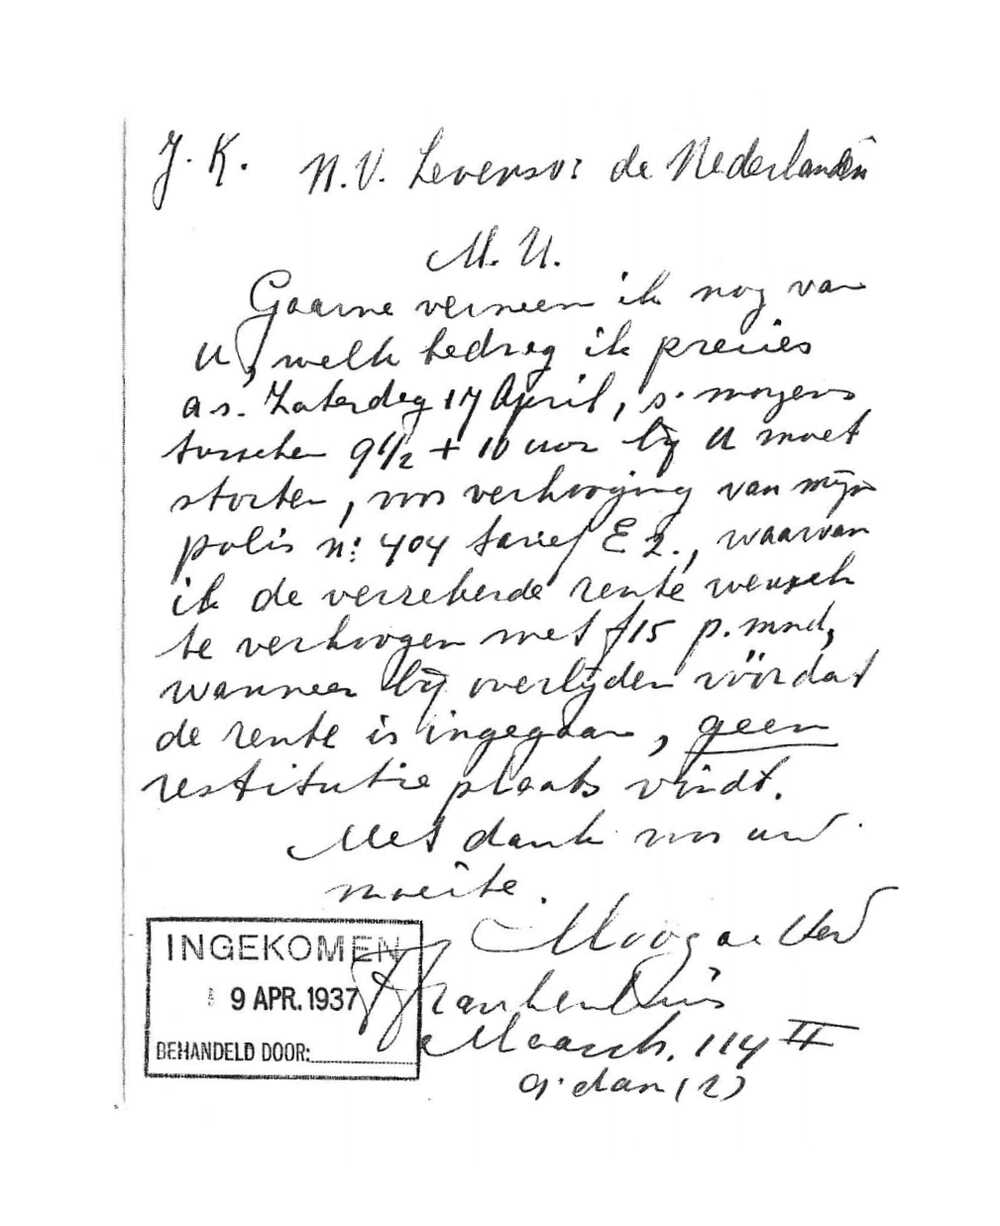 J. K. N.V. Levensv: de Nederlanden
M. H.
Gaarne verneem ik nog van
U, welk bedrag ik precies
a s. Zaterdag 17 April, 's morgens
tusschen 9 1/2 + 10 uur bij U moet
storten, voor verhooging van mijn
polis n: 404 tarief E 2., waarvan
ik de verzekerde rente wensch
te verhoogen met f 15 p. mnd,
wanneer bij overlijden vóórdat
de rente is ingegaan, geen
restitutie plaats vindt.
Met dank voor uw
moeite.
Hoogachtend
INGEKOMEN
9 APR. 1937
BEHANDELD DOOR:
Frankenhuis
114 II
A'dam (Z)